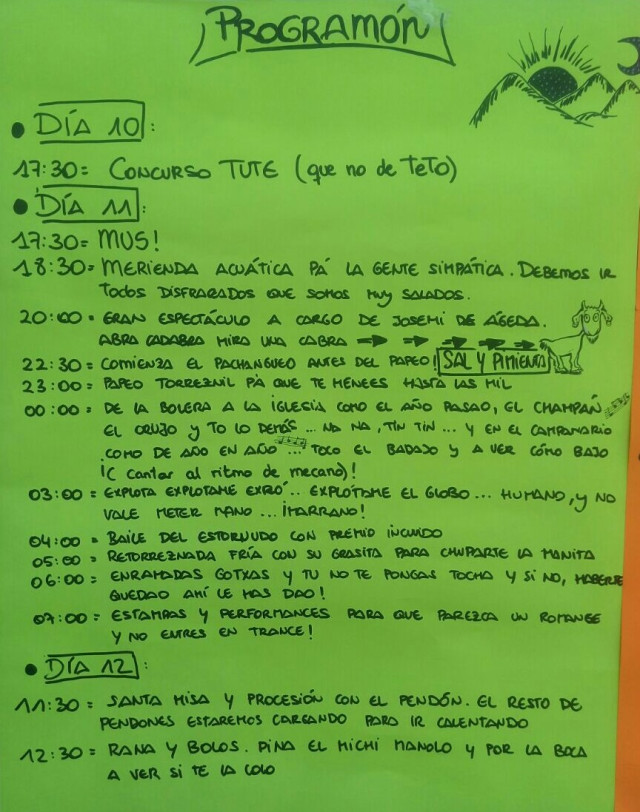 PROGRAMÓN
• DÍA 10:
17:30= CONCURSO TUTE (que no de TETO)
• DÍA 11:
17:30= MUS!
18:30= MERIENDA ACUÁTICA PÁ LA GENTE SIMPÁTICA. DEBEMOS IR
TODOS DISFRAZADOS QUE SOMOS MUY SALADOS.
20:00= GRAN ESPECTÁCULO A CARGO DE JOSEMI DE ÁGEDA.
ABRA CADABRA MIRA UNA CABRA
22:30= COMIENZA EL PACHANGUEO ANTES DEL PAPEO! SAL Y PIMIENTA
23:00= PAPEO TORREZNIL PÀ QUE TE MENEES HASTA LAS MIL
00:00= DE LA BOLERA A LA IGLESIA COMO EL AÑO PASAO, EL CHAMPÁN,
EL ORUJO Y TO LO DEMÁS ... NA NA, TIN TIN ... Y EN EL CAMPANARIO
COMO DE AÑO EN AÑO ... TOCO EL BADAJO Y A VER CÓMO BAJO
¡(Cantar al ritmo de mecano)!
03:00= EXPLOTA EXPLOTAME EXPLÓ.. EXPLÓTAME EL GLOBO ... HUMANO, y NO
VALE METER MANO ... ¡MARRANO!
04:00= BAILE DEL ESTORNUDO CON PREMIO INCLUIDO
05:00= RETORREZNADA FRÍA CON SU GRASITA PARA CHUPARTE LA MANITA
06:00= ENRAMADAS GOTXAS Y TU NO TE PONGAS TOCHA Y SI NO, HABERTE
QUEDAO AHÍ LE HAS DAO!
07:00= ESTAMPAS Y PERFORMANCES PARA QUE PAREZCA UN ROMANCE
Y NO ENTRES EN TRANCE!
• DÍA 12:
11:30= SANTA MISA Y PROCESIÓN CON EL PENDÓN. EL RESTO DE
PENDONES ESTAREMOS CARGANDO PARA IR CALENTANDO
12:30= RANA Y BOLOS. PINA EL MICHI MANOLO Y POR LA BOCA
A VER SI TE LA COLO